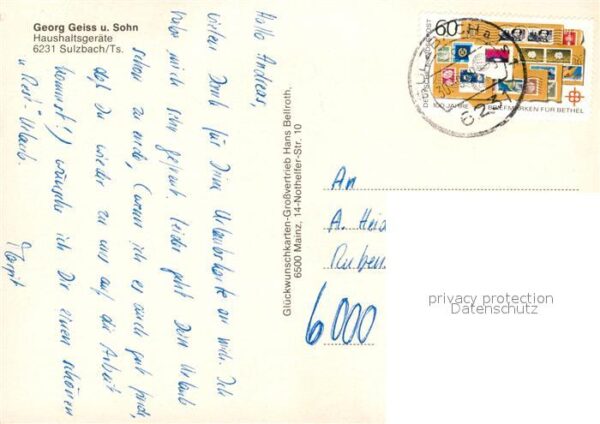 Georg Geiss u. Sohn
Haushaltsgeräte
6231 Sulzbach/Ts.
Hallo Andreas,
vielen Dank für Deine Urlaubskarte an mich. Ich
habe mich sehr gefreut. Leider geht Dein Urlaub
schon zu ende, (wenn ich es auch gut finde,
daß Du wieder zu uns auf die Arbeit
kommst!) wünsche ich Dir einen schönen
"Rest"-Urlaub.
Margit
Glückwunschkarten-Großvertrieb Hans Bellroth,
6500 Mainz, 14-Nothelfer-Str. 10
60
DEUTSCHE BUNDESPOST
100 JAHRE BRIEFMARKEN FÜR BETHEL
623
An
A. Heid
Ruben
6000
privacy protection
Datenschutz